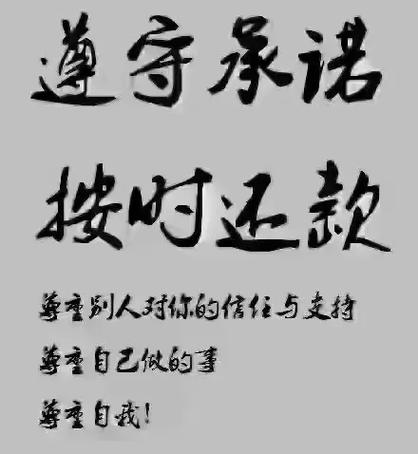 遵守承诺
按时还款
尊重别人对你的信任与支持
尊重自己做的事
尊重自我!